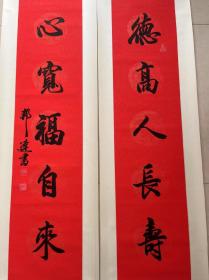 德高人長壽
心寬福自來
邦達書